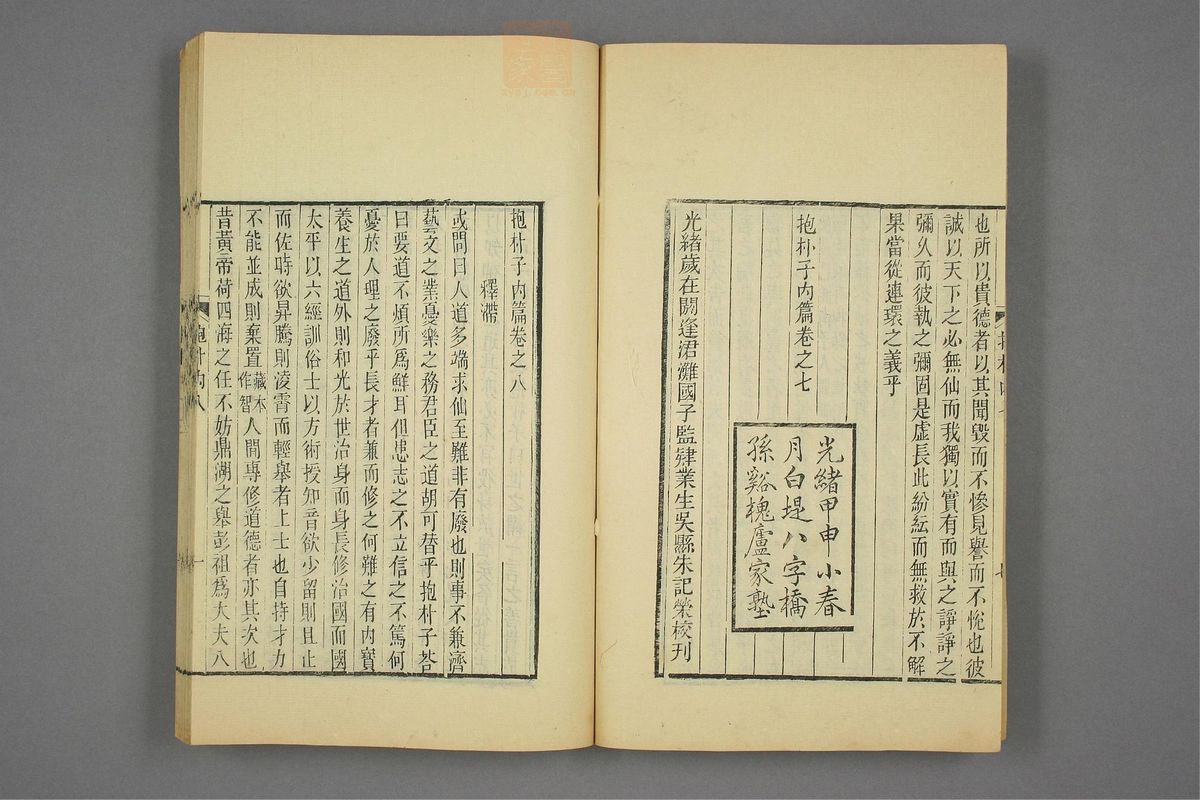 也所以貴德者以其聞毀而不慘見譽而不恱也彼
誠以天下之必無仙而我獨以實有而與之諍諍之
彌久而彼執之彌固是虛長此紛紜而無救於不解
果當從連環之義乎
抱朴子內篇卷之七
光緒甲申小春
月白堤八字橋
孫谿槐廬家塾
光緒歲在閼逢涒灘國子監肄業生吳縣朱記榮校刊
抱朴子內篇卷之八
釋滯
或問曰人道多端求仙至難非有廢也則事不兼濟
藝文之業憂樂之務君臣之道胡可替乎抱朴子荅
曰要道不煩所爲鮮耳但患志之不立信之不篤何
憂於人理之廢乎長才者兼而修之何難之有內寶
養生之道外則和光於世治身而身長修治國而國
太平以六經訓俗士以方術授知音欲少留則且止
而佐時欲昇騰則凌霄而輕舉者上士也自持才力
不能並成則棄置藏本作智人間專修道德者亦其次也
昔黃帝荷四海之任不妨鼎湖之舉彭祖爲大夫八
抱朴內八
一